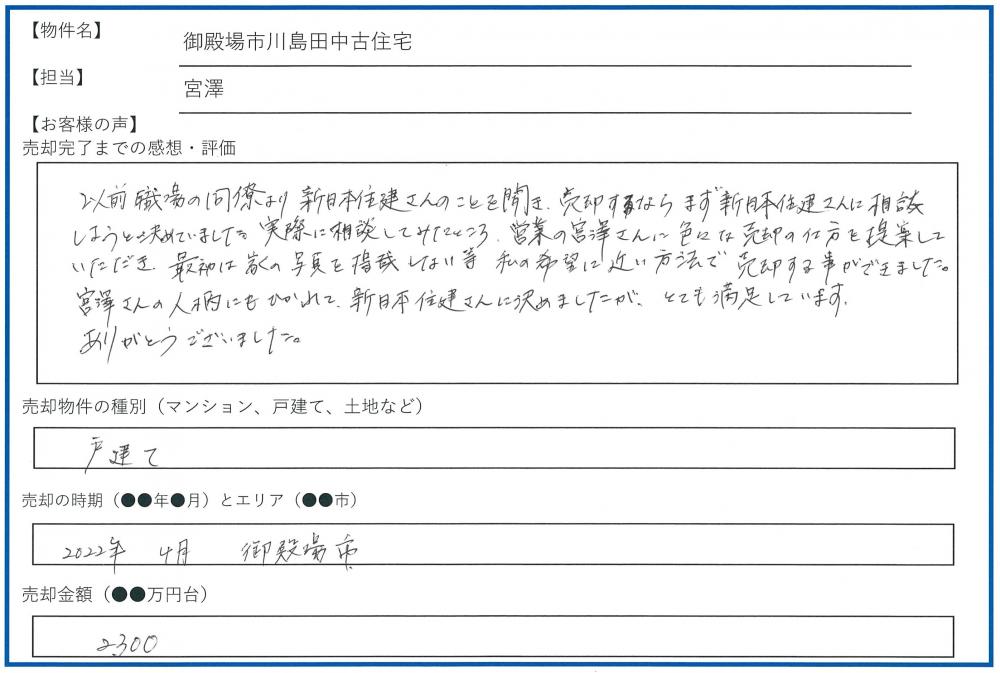 【物件名】
御殿場市川島田中古住宅
【担当】
宮澤
【お客様の声】
売却完了までの感想・評価
以前職場の同僚より新日本住建さんのことを聞き、売却するならまず新日本住建さんに相談
しようと決めていました。実際に相談してみたところ、営業の宮澤さんに色々な売却の仕方を提案して
いただき、最初は家の写真を掲載しない等 私の希望に近い方法で売却する事ができました。
宮澤さんの人柄にもひかれて、新日本住建さんに決めましたが、とても満足しています。
ありがとうございました。
売却物件の種別（マンション、戸建て、土地など）
戸建て
売却の時期（●●年●月）とエリア（●●市）
2022年 4月 御殿場市
売却金額（●●万円台）
2300